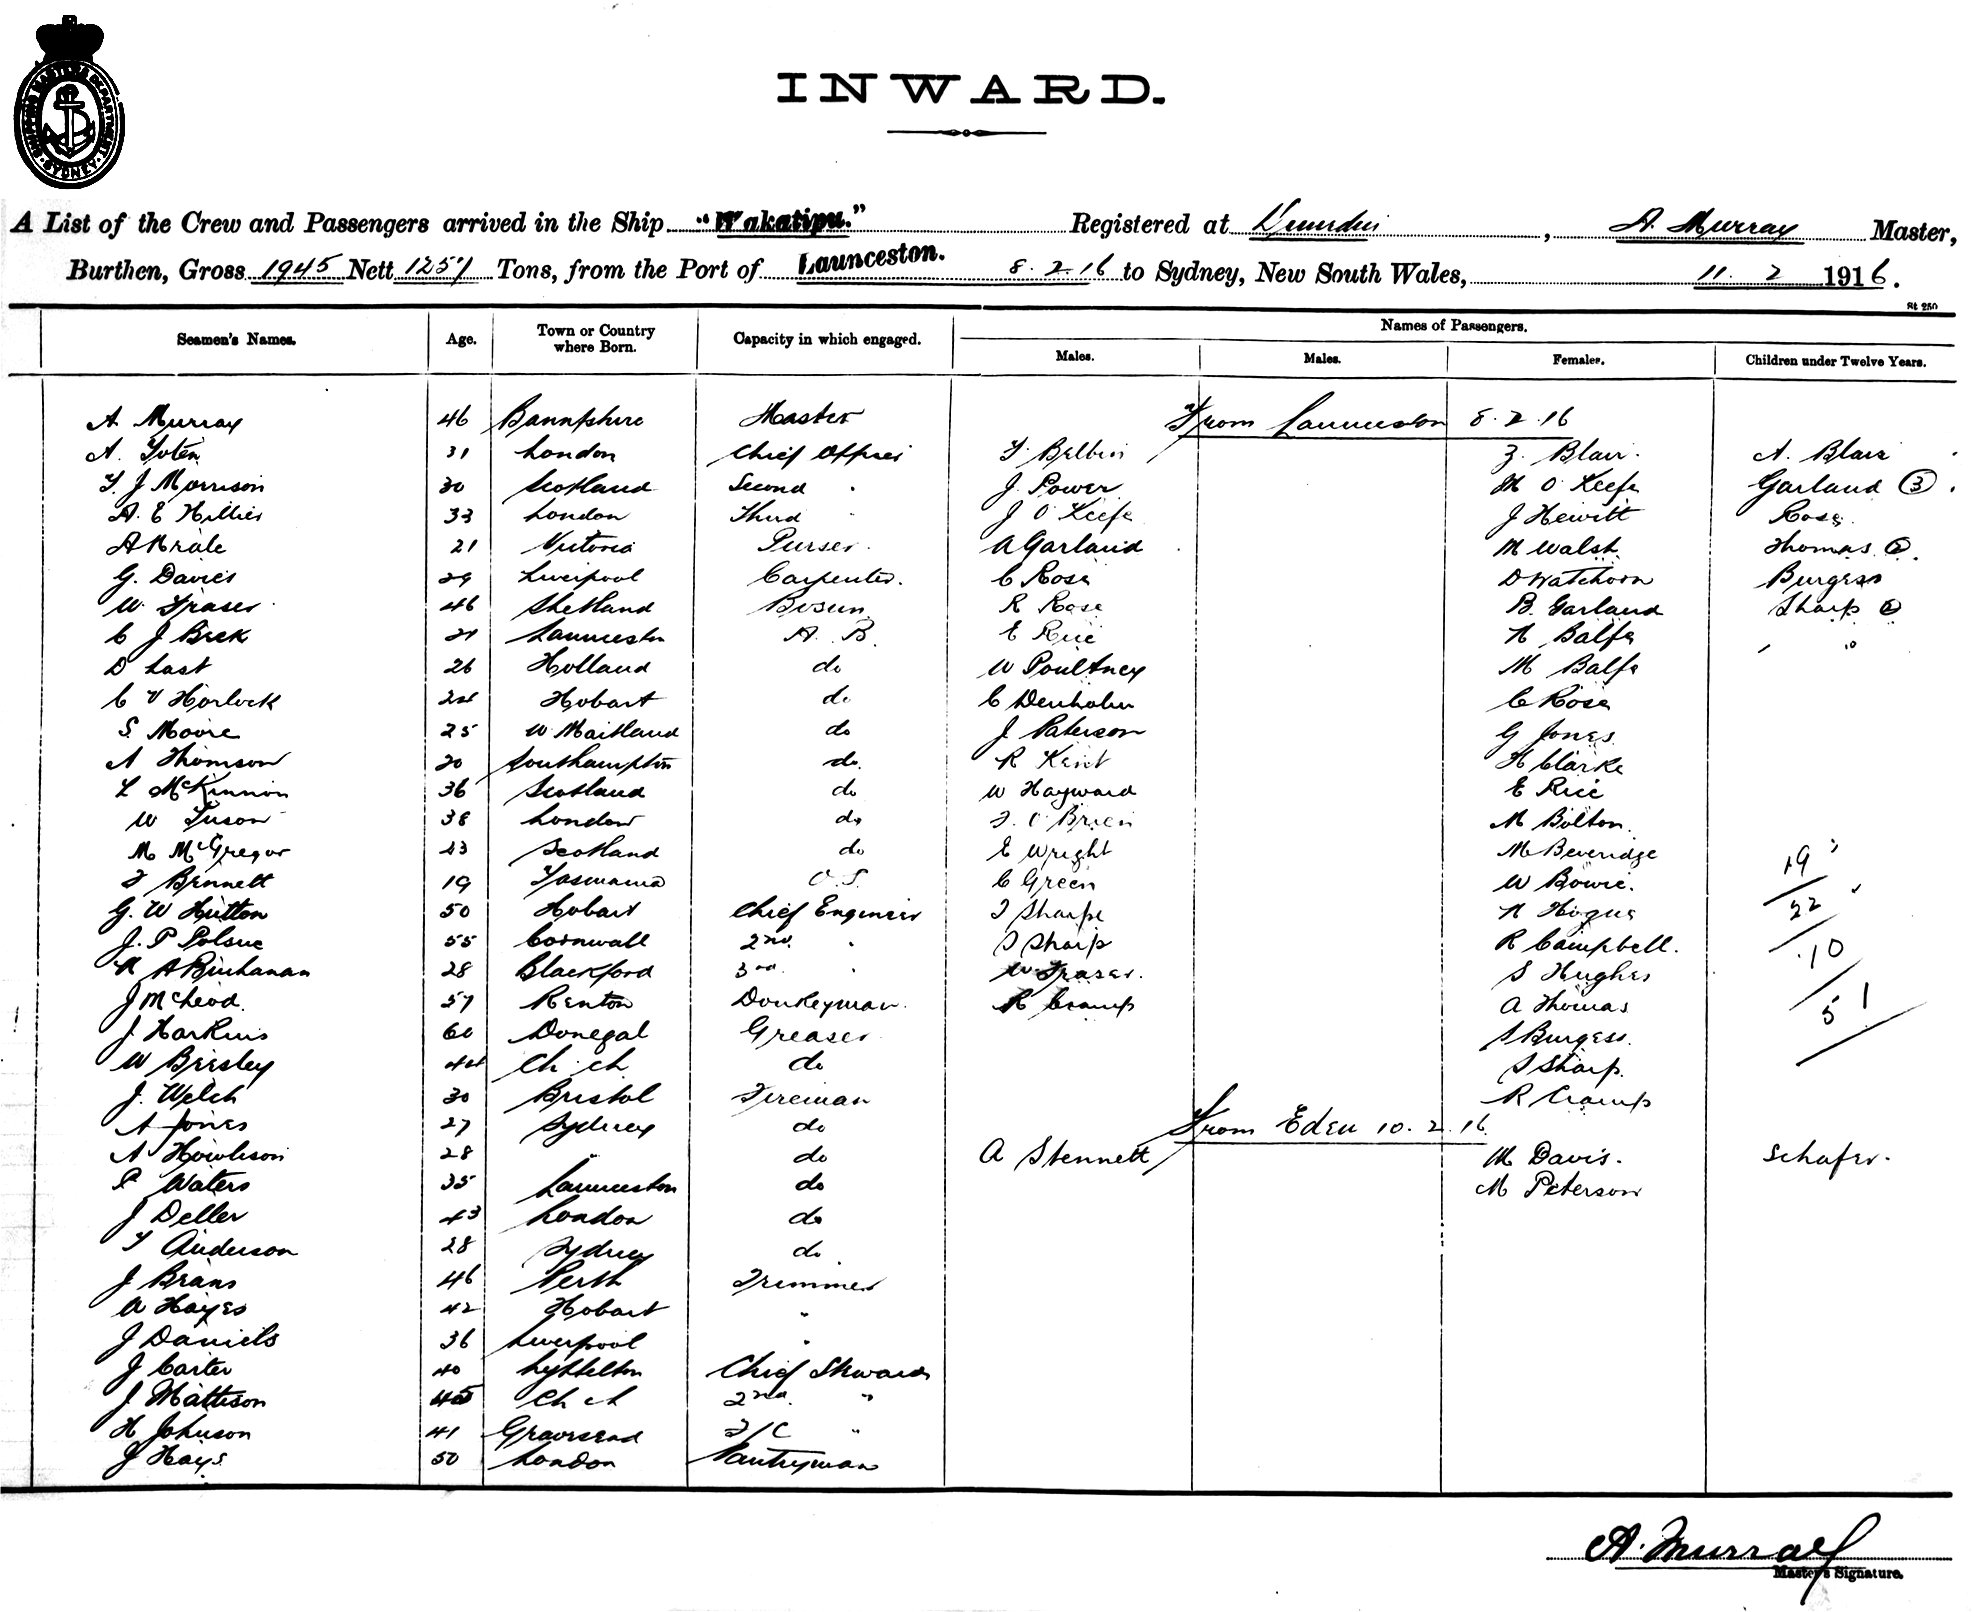 SHIPPING MASTER'S DEPARTMENT SYDNEY
INWARD.
A List of the Crew and Passengers arrived in the Ship "Wakatipu." Registered at , A. Murray Master,
Burthen, Gross 1945 Nett 1257 Tons, from the Port of Launceston. 8.2.16 to Sydney, New South Wales, 11. 2 1916.
St 250
Seamen's Names. Age. Town or Country where Born. Capacity in which engaged. Names of Passengers.
Males. Males. Females. Children under Twelve Years.
A Murray 46 Banffshire Master From Launceston 8.2.16
A. 31 London Chief Officer Z. Blair. A. Blair
J Morrison 30 Scotland Second " J. Power M O'Keefe Garland (3)
A. E Hillier 33 London Third " J O'Keefe J Hewitt Rose
21 Victoria Purser. A Garland M Walsh Thomas
G. Davies 29 Liverpool Carpenter. C Rose D Watchorn Burgess
W. Fraser 46 Shetland Bosun R Rose B. Garland Sharp
C J Beek 21 Launceston A. B. E Rice Balfe " "
D Last 26 Holland do W Poultney M Balfe
C V Horlock 24 Hobart do C Denholm C Rose
S. Moore 25 W. Maitland do J Paterson G Jones
A Thomson 20 Southampton do. R Kent H Clarke
L McKinnon 36 Scotland do W Hayward E Rice
W Tuson 38 London do O'Brien M Bolton.
M McGregor 43 Scotland do E Wright M Beveridge 19
Bennett 19 Tasmania O.S. C Green W Bowie. 22
G. W Hutton 50 Hobart Chief Engineer Sharpe Hogue
J. P Polsue 55 Cornwall 2nd. " S Sharp R Campbell. 10
A Buchanan 28 Blackford 3rd. " W Fraser. S Hughes
J McLeod. 57 Renton Donkeyman. R Cramp A Thomas 51
J Harkins 60 Donegal Greaser S Burgess.
W Bresley 44 Ch ch do S Sharp.
J. Welch 30 Bristol Fireman R Cramp
A Jones 27 Sydney do From Eden 10.2.16
A Howieson 28 " do A Stennett M Davis. Schafer.
P Waters 35 Launceston do M Peterson
J Deller 43 London do
Anderson 28 Sydney do
J Brans 46 Perth Trimmer
W Hayes 42 Hobart "
J Daniels 36 Liverpool "
J Carter 40 Lyttelton Chief Steward
J Mattison 45 Ch ch 2nd. "
H Johnson 41 Gravesend "
J Hays. 50 London Pantryman
A. Murray
Master's Signature.